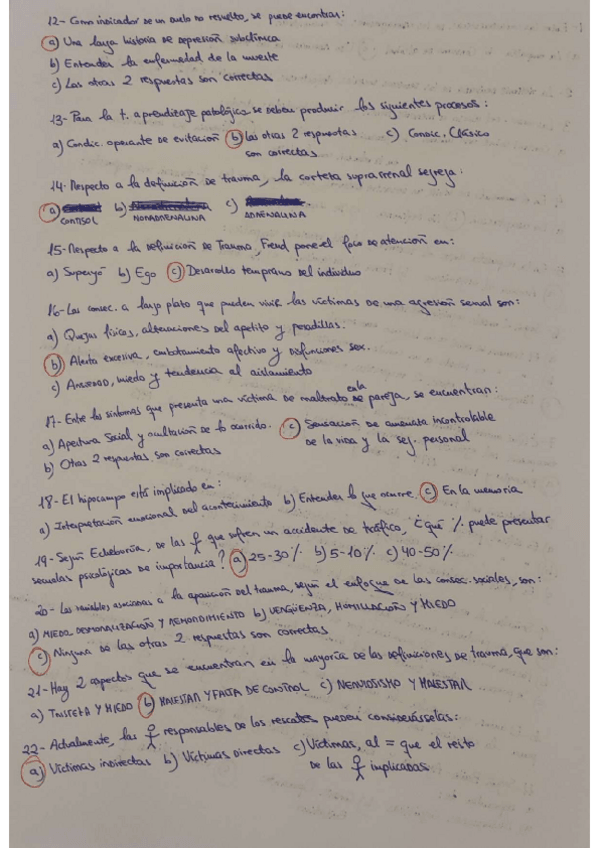 12- Como indicador de un duelo no resuelto, se puede encontrar:
a) Una larga historia de depresión subclínica
b) Entender la enfermedad de la muerte
c) Las otras 2 respuestas son correctas
13- Para la t. aprendizaje patológico, se deben producir los siguientes procesos:
a) Condic. operante de evitación b) Las otras 2 respuestas son correctas c) Condic. Clásico
14- Respecto a la definición de trauma, la corteza suprarrenal segrega:
a) CORTISOL b) NORADRENALINA c) ADRENALINA
15- Respecto a la definición de Trauma, Freud pone el foco de atención en:
a) Superyó b) Ego c) Desarollo temprano del individuo
16- Las consec. a largo plazo que pueden vivir las víctimas de una agresión sexual son:
a) Quejas físicas, alteraciones del apetito y pesadillas.
b) Alerta excesiva, embotamiento afectivo y disfunciones sex.
c) Ansiedad, miedo y tendencia al aislamiento
17- Entre los síntomas que presenta una víctima de maltrato en la pareja, se encuentran:
a) Apertura Social y ocultación de lo ocurrido. c) Sensación de amenaza incontrolable
b) Otras 2 respuestas son correctas de la vida y la seg. personal
18- El hipocampo está implicado en:
a) Interpretación emocional del acontecimiento b) Entender lo que ocurre. c) En la memoria
19- Según Echeburúa, de las que sufren un accidente de tráfico, ¿qué % puede presentar
secuelas psicológicas de importancia? a) 25-30% b) 5-10% c) 40-50%
20- Las variables asociadas a la aparición del trauma, según el enfoque de las consec. sociales, son:
a) MIEDO, DESMORALIZACIÓN Y REMORDIMIENTO b) VERGÜENZA, HUMILLACIÓN Y MIEDO
c) Ninguna de las otras 2 respuestas son correctas
21- Hay 2 aspectos que se encuentran en la mayoría de las definiciones de trauma, que son:
a) TRISTEZA Y MIEDO b) MALESTAR Y FALTA DE CONTROL c) NEUROTISMO Y MALESTAR
22- Actualmente, las responsables de los rescates pueden considerárselas:
a) Víctimas indirectas b) Víctimas directas c) Víctimas, al = que el resto
de las implicadas